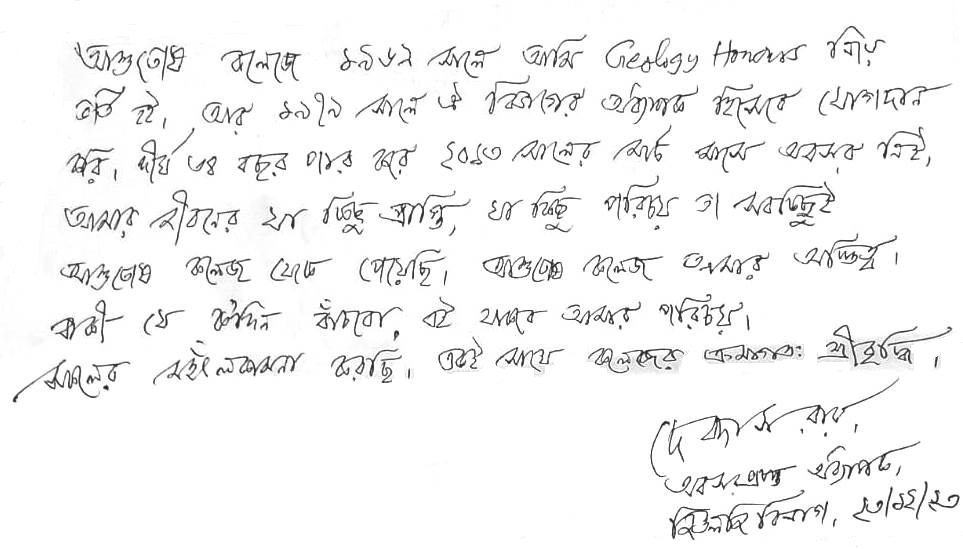 আশুতোষ কলেজে ১৯৬৯ সালে আমি Geology Honours নিয়ে
ভর্তি হই, আর ১৯৭৯ সালে ঐ বিভাগের অধ্যাপক হিসেবে যোগদান
করি। দীর্ঘ ৩৪ বছর পার করে ২০১৩ সালের মার্চ মাসে অবসর নিই,
আমার জীবনের যা কিছু প্রাপ্তি, যা কিছু পরিচয় তা সবকিছুই
আশুতোষ কলেজ থেকে পেয়েছি। আশুতোষ কলেজ আমার অস্তিত্ব।
বাকী যে কটাদিন বাঁচবো, এই থাকবে আমার পরিচয়।
সকলের মঙ্গলকামনা করছি। একই সাথে কলেজের ক্রমাগতঃ শ্রীবৃদ্ধি।
দেবদাস রায়,
অবসরপ্রাপ্ত অধ্যাপক,
জিওলজি বিভাগ, ২৩/১২/২৩